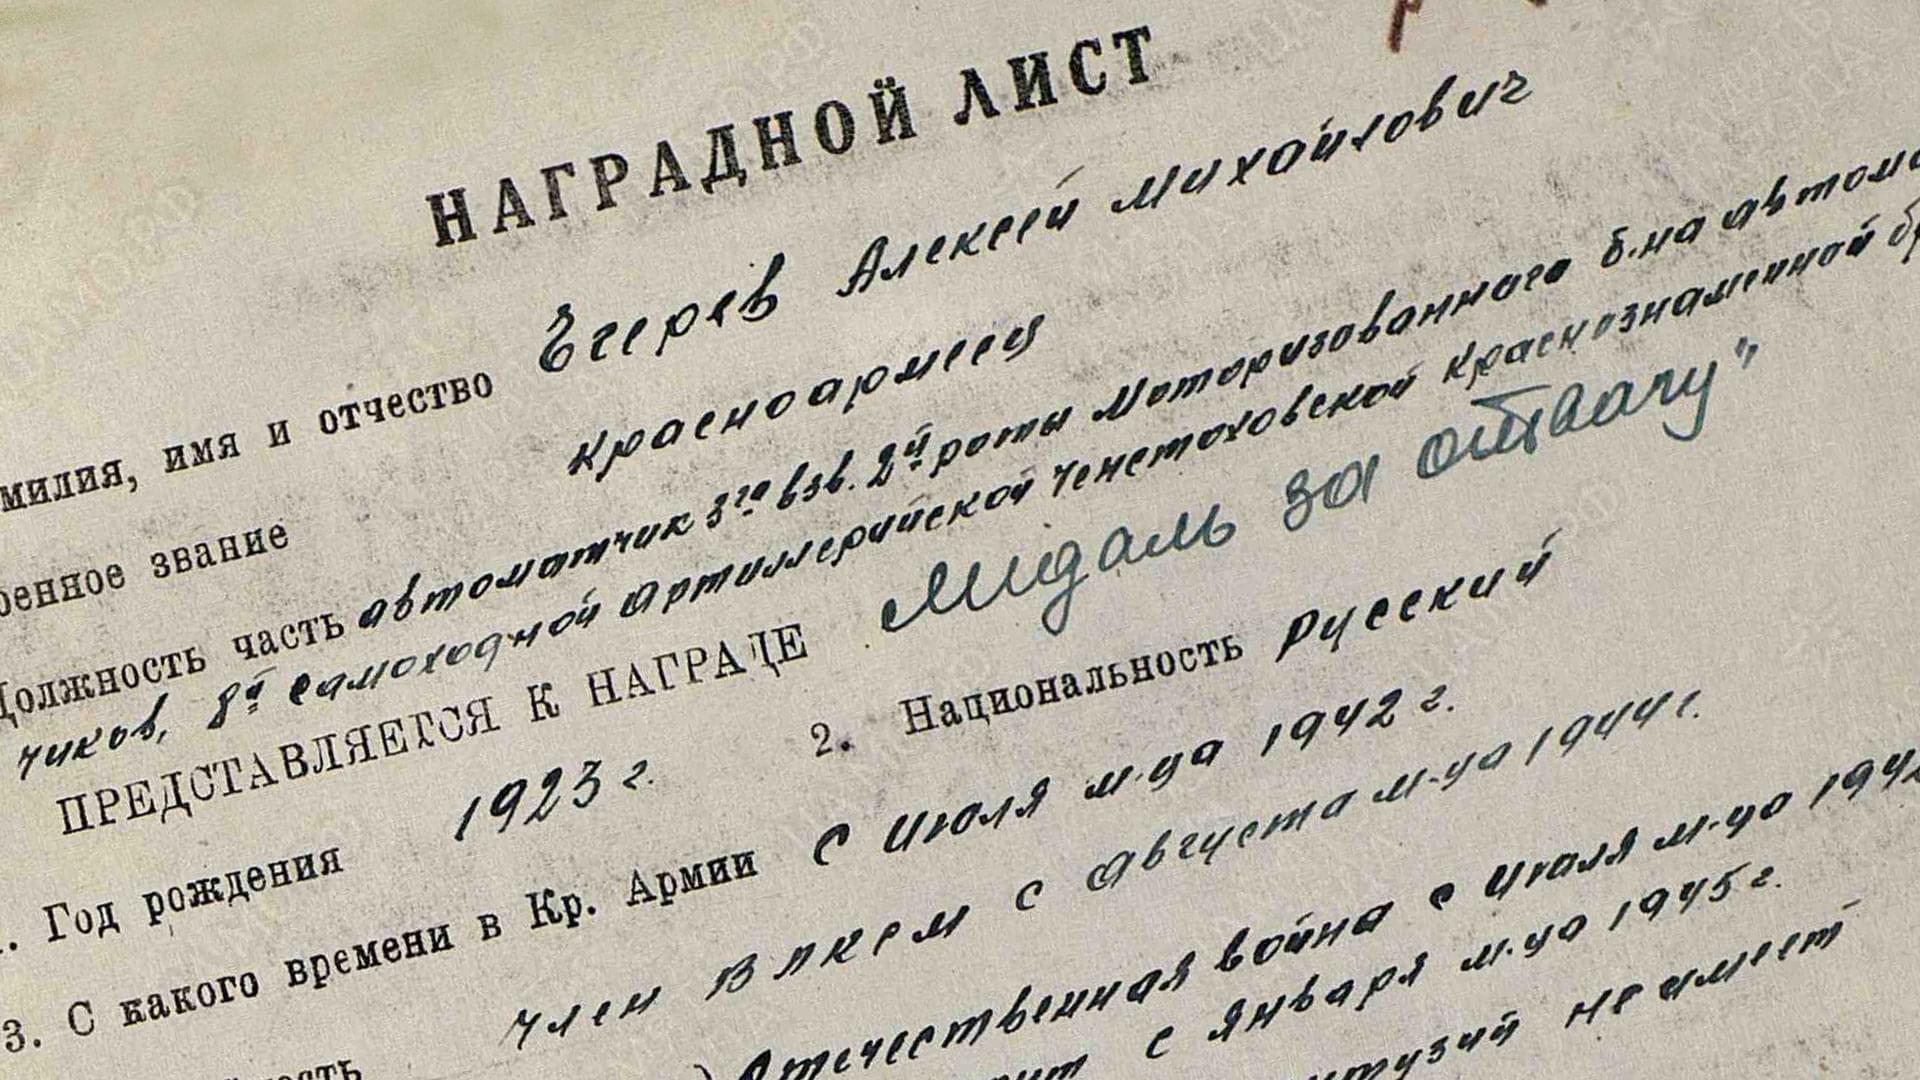 НАГРАДНОЙ ЛИСТ
милия, имя и отчество Егерев Алексей Михайлович
оенное звание красноармеец
Должность часть автоматчик 3го взв. 2й роты моторизованного б-на автома
чиков, 8й самоходной артиллерийской Ченстоховской краснознаменной бр
ПРЕДСТАВЛЯЕТСЯ К НАГРАДЕ Медаль за отвагу"
1. Год рождения 1923 г. 2. Национальность русский
3. С какого времени в Кр. Армии с июля м-ца 1942 г.
ность член ВЛКСМ с августа м-ца 1944 г.
Отечественная война с июля м-ца 194
с января м-ца 1945 г.
нтузий не имеет